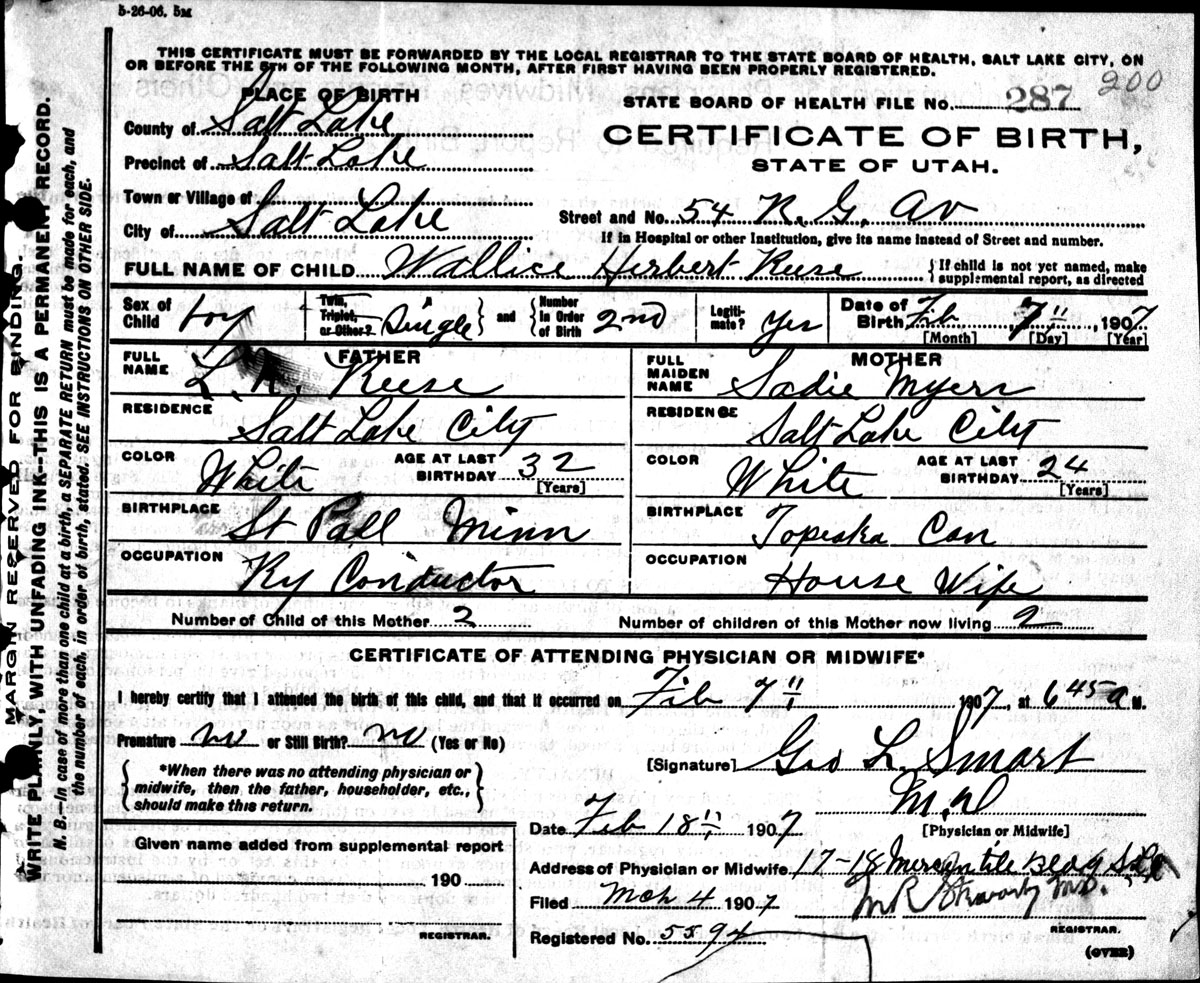 5-26-06. 5M
THIS CERTIFICATE MUST BE FORWARDED BY THE LOCAL REGISTRAR TO THE STATE BOARD OF HEALTH, SALT LAKE CITY, ON
OR BEFORE THE 5TH OF THE FOLLOWING MONTH, AFTER FIRST HAVING BEEN PROPERLY REGISTERED.
200
PLACE OF BIRTH
STATE BOARD OF HEALTH FILE No. 287
County of Salt Lake
CERTIFICATE OF BIRTH,
Precinct of Salt Lake
STATE OF UTAH.
Town or Village of
City of Salt Lake
Street and No. 54 R. G. Av
If in Hospital or other Institution, give its name instead of Street and number.
FULL NAME OF CHILD Wallice Herbert Reese
{If child is not yet named, make
supplemental report, as directed
Sex of Child boy
Twin, Triplet, or Other? Single } and { Number in Order of Birth 2nd
Legitimate? Yes
Date of Birth Feb 7", 1907
[Month] [Day] [Year]
FATHER
FULL NAME L. R. Reese
RESIDENCE
Salt Lake City
COLOR White AGE AT LAST BIRTHDAY 32
[Years]
BIRTHPLACE
St Pall Minn
OCCUPATION
Ry Conductor
MOTHER
FULL MAIDEN NAME Sadie Myers
RESIDENCE
Salt Lake City
COLOR White AGE AT LAST BIRTHDAY 24
[Years]
BIRTHPLACE
Topeska Can
OCCUPATION
House Wife
Number of Child of this Mother 2
Number of children of this Mother now living 2
CERTIFICATE OF ATTENDING PHYSICIAN OR MIDWIFE*
I hereby certify that I attended the birth of this child, and that it occurred on Feb 7" 1907, at 6 45 a M.
Premature no or Still Birth? no (Yes or No)
{ *When there was no attending physician or
midwife, then the father, householder, etc.,
should make this return. }
[Signature] Geo L. Smart
M.D
[Physician or Midwife]
Date Feb 18" 1907
Given name added from supplemental report
190
REGISTRAR.
Address of Physician or Midwife 17-18 Mercantile Bldg
Filed Mch 4 1907
M R M.D.
REGISTRAR.
Registered No. 5594
(OVER)
MARGIN RESERVED FOR BINDING.
WRITE PLAINLY, WITH UNFADING INK—THIS IS A PERMANENT RECORD.
N. B.—In case of more than one child at a birth, a SEPARATE RETURN must be made for each, and
the number of each, in order of birth, stated. SEE INSTRUCTIONS ON OTHER SIDE.